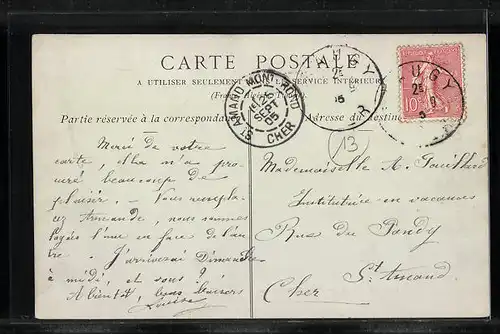 CARTE POSTALE
A UTILISER SEULEMENT SERVICE INTÉRIEUR
Partie réservée à la correspondance
Adresse du destina
ST AMAND-MONT-ROND
25
SEPT
05
CHER
UGY
25
9
05
UGY
25
9
10
13
Merci de votre
carte, elle m'a pro
curé beaucoup de
plaisir. - Vous rempla
cez Armande, nous sommes
logées l'une en face de l'au
tre. - J'arriverai Dimanche
à midi, et vous ?
A bientôt, bons baisers
Louise
Mademoiselle A.
Institutrice en vacances
Rue du
St Amand
Cher